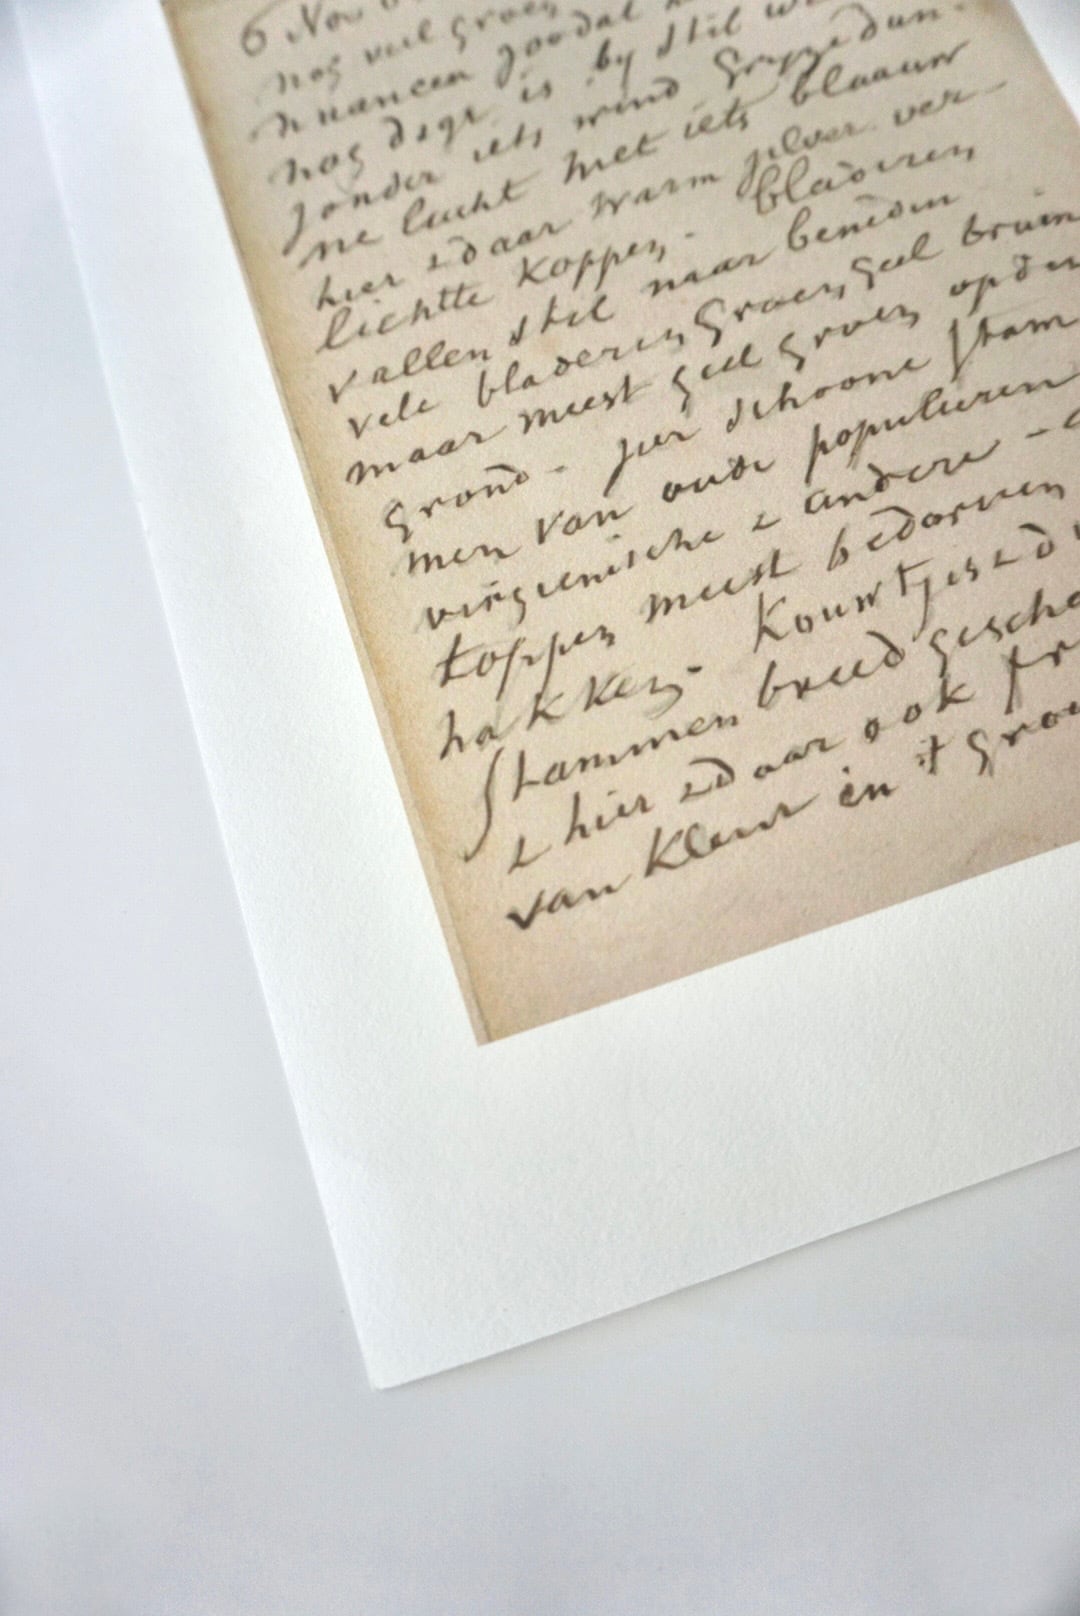 6 Nov
nog veel groen
nuancen zoodat
nog dege is by stil
zonder iets wind gryze dun-
ne lucht met iets blaauw
hier & daar warm zilver ver-
lichtte koppen - bladeren
vallen stil naar beneden
vele bladeren groen, geel bruin
maar meest geel groen op den
grond - zeer schoone stam
men van oude populieren
virgienische & andere -
koppen meest bedorven
hakken - Kouwtjes & d
stammen breed gescha
& hier & daar ook fr
van kleur in 't groe